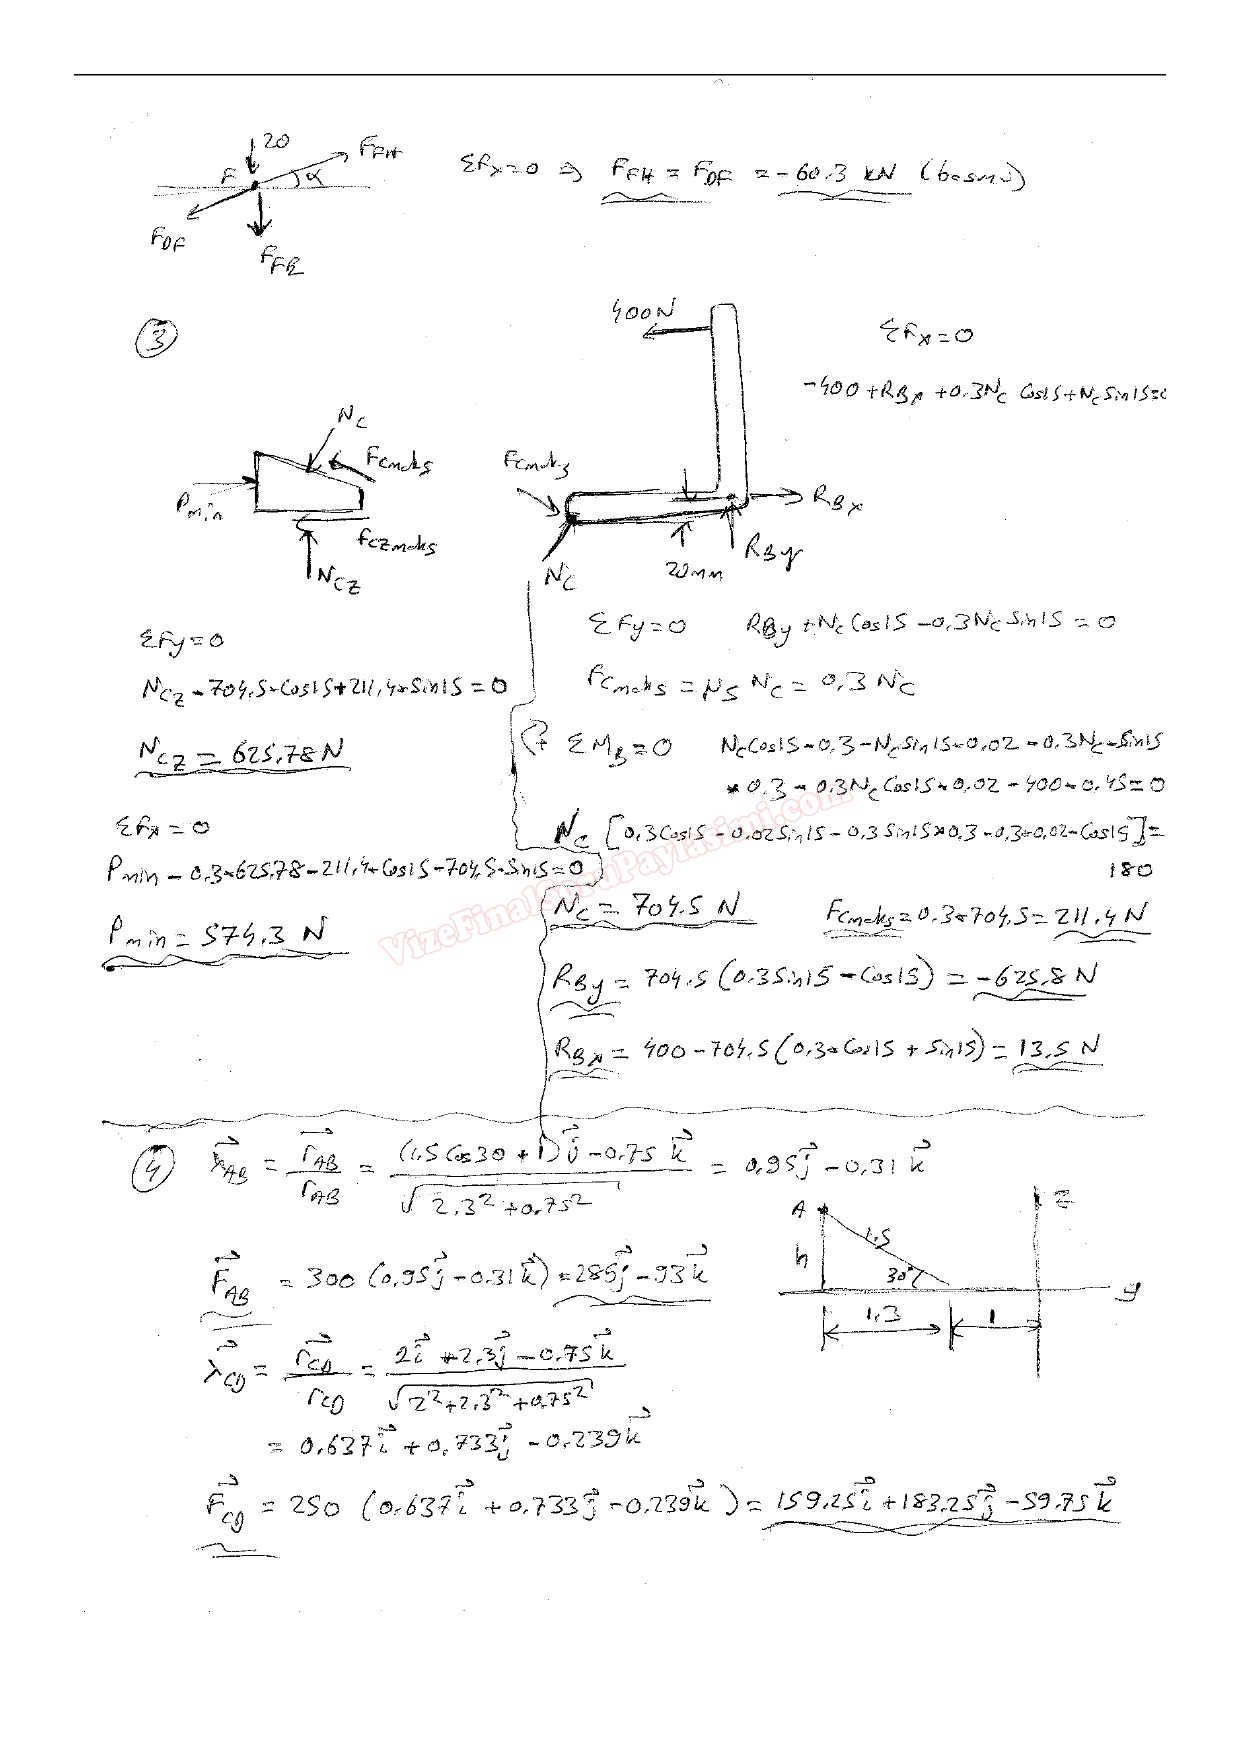 20
F_FH
F α
F_DF
F_FE
ΣFx=0 ⇒ F_FH = F_DF = -60.3 kN (bası)
③
400N
ΣFx=0
-400+R_Bx+0.3Nc Cos15+Nc Sin15=0
Nc
Fcmaks
Pmin
Fczmaks
Ncz
Fcmaks
R_Bx
R_By
20mm
Nc
ΣFy=0
Ncz-704,5*Cos15+211,4*Sin15=0
Ncz = 625,78N
ΣFx=0
Pmin-0.3*625,78-211,4*Cos15-704,5*Sin15=0
Pmin=574.3 N
ΣFy=0 R_By+Nc Cos15-0,3Nc Sin15=0
Fcmaks=μs Nc=0,3 Nc
+ ΣM_B=0 Nc Cos15*0.3-Nc Sin15*0,02-0.3Nc*Sin15
*0.3-0.3Nc Cos15*0,02-400*0.45=0
Nc [0,3Cos15-0.02Sin15-0,3Sin15*0,3-0,3*0,02*Cos15]=
180
Nc=704.5 N Fcmaks=0.3*704,5=211,4N
R_By=704.5(0,3Sin15-Cos15)=-625,8N
R_Bx=400-704,5(0,3*Cos15+Sin15)=13,5 N
VizeFinalSoruPaylasimi.com
④ λ_AB = r_AB / r_AB = (1,5Cos30+1)j-0.75 k / √2.3²+0,75² = 0,95j-0,31k
F_AB = 300(0,95j-0.31k)=285j-93k
A
h
1.5
30°
z
y
1,3
1
λ_CD = r_CD / r_CD = 2i+2.3j-0,75k / √2²+2,3²+0,75²
= 0,637i+0,733j-0.239k
F_CD = 250 (0.637i+0.733j-0.239k)=159.25i+183,25j-59.75k